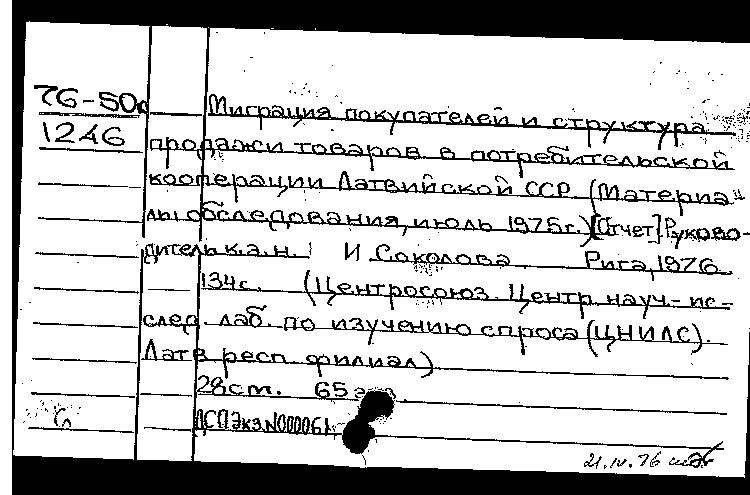 76-50с Миграция покупателей и структура
1246 продажи товаров в потребительской
кооперации Латвийской ССР (Материа-
лы обследования, июль 1975г.) [Отчет]. Руково-
дитель к.э.н. И Соколова Рига, 1976
134с. (Центросоюз. Центр. науч.- ис-
след. лаб. по изучению спроса (ЦНИЛС).
Латв респ. филиал)
28cm. 65
ДСП Экз.N000061
21.IV.76